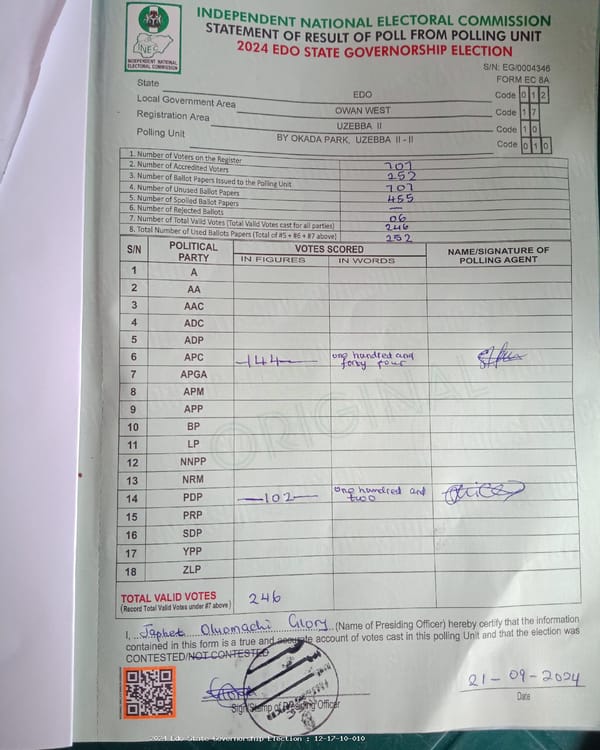 INDEPENDENT NATIONAL ELECTORAL COMMISSION
STATEMENT OF RESULT OF POLL FROM POLLING UNIT
2024 EDO STATE GOVERNORSHIP ELECTION
INEC
INDEPENDENT NATIONAL
ELECTORAL COMMISSION
S/N: EG/0004346
FORM EC 8A
State EDO Code 0 1 2
Local Government Area OWAN WEST Code 1 7
Registration Area UZEBBA II Code 1 0
Polling Unit BY OKADA PARK, UZEBBA II - II Code 0 1 0
1. Number of Voters on the Register 707
2. Number of Accredited Voters 252
3. Number of Ballot Papers Issued to the Polling Unit 707
4. Number of Unused Ballot Papers 455
5. Number of Spoiled Ballot Papers —
6. Number of Rejected Ballots 06
7. Number of Total Valid Votes (Total Valid Votes cast for all parties) 246
8. Total Number of Used Ballots Papers (Total of #5 + #6 + #7 above) 252
S/N POLITICAL PARTY VOTES SCORED NAME/SIGNATURE OF POLLING AGENT
IN FIGURES IN WORDS
1 A
2 AA
3 AAC
4 ADC
5 ADP
6 APC —144— one hundred and forty four
7 APGA
8 APM
9 APP
10 BP
11 LP
12 NNPP
13 NRM
14 PDP —102— one hundred and two
15 PRP
16 SDP
17 YPP
18 ZLP
ORIGINAL
TOTAL VALID VOTES 246
(Record Total Valid Votes under #7 above)
I, Japhet Glory (Name of Presiding Officer) hereby certify that the information
contained in this form is a true and accurate account of votes cast in this polling Unit and that the election was
CONTESTED/NOT CONTESTED
21-09-2024
Sign/Stamp of Presiding Officer Date
2024 Edo State Governorship Election : 12-17-10-010